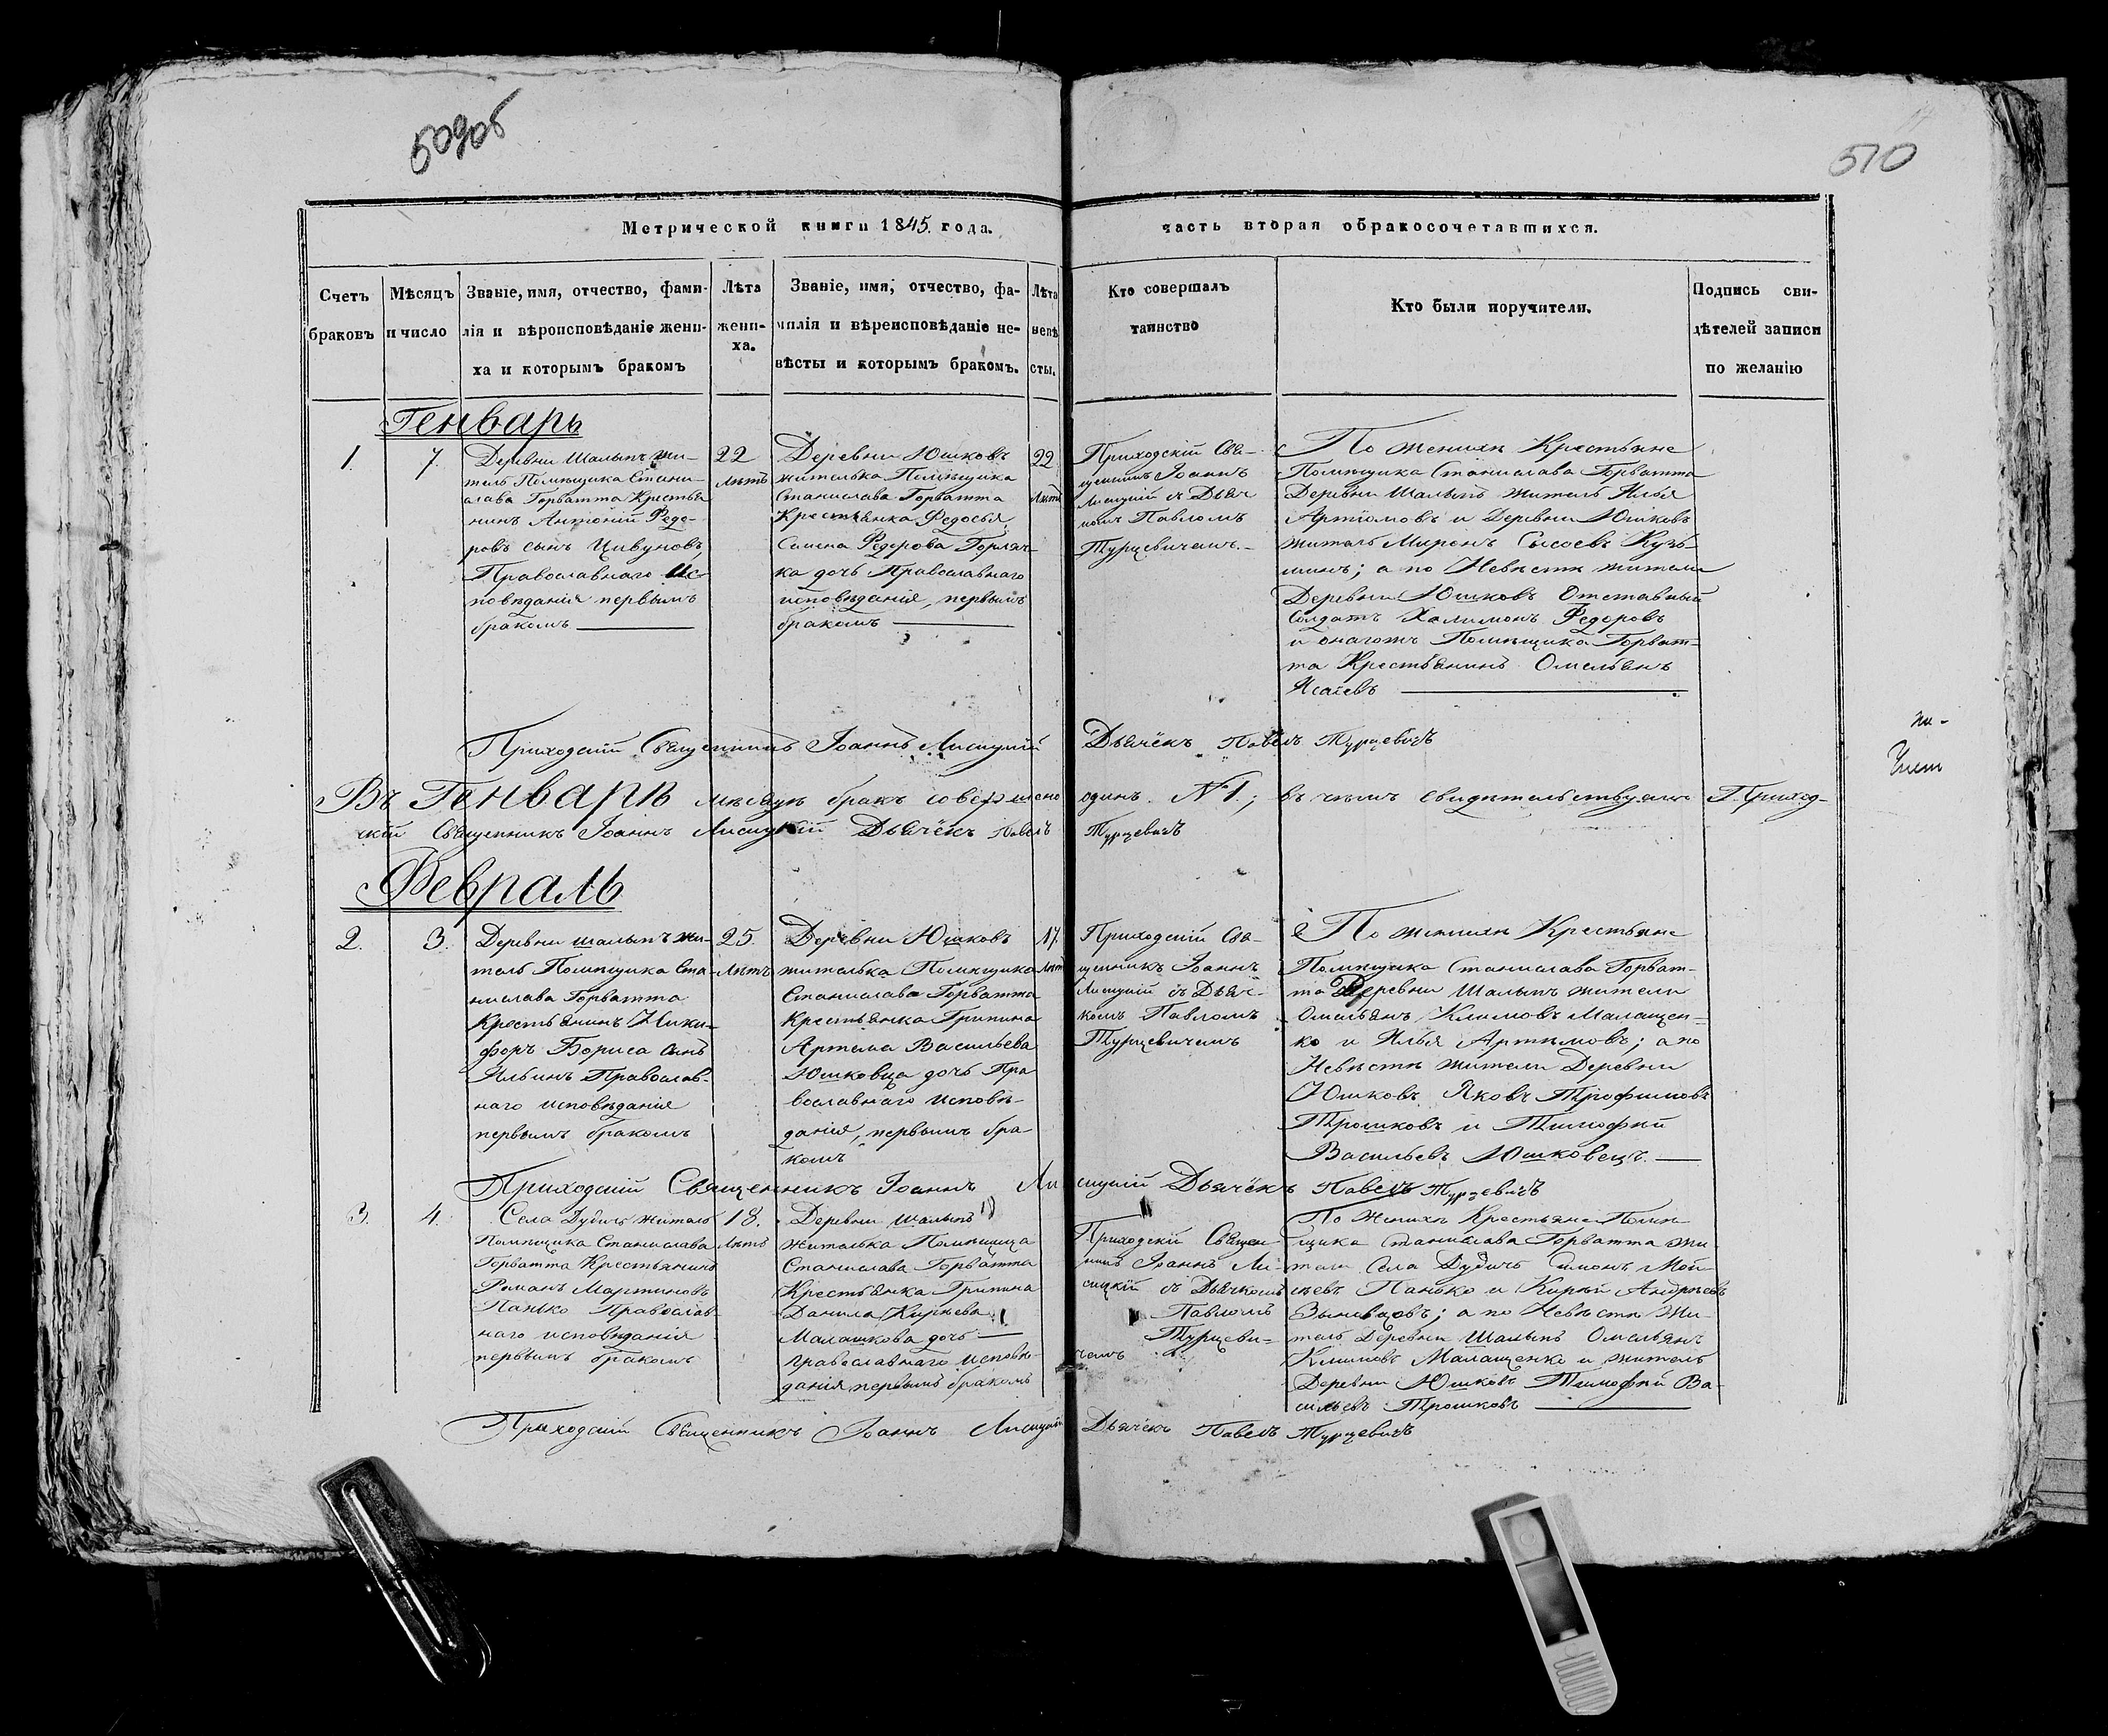 509об
510
Метрической книги 1845. года.
часть вторая обракосочетавшихся.
Счетъ
браковъ
Мѣсяцъ
и число
Званіе, имя, отчество, фами-
лія и вѣроисповѣданіе жени-
ха и которымъ бракомъ
Лѣта
жени-
ха.
Званіе, имя, отчество, фа-
милія и вѣреисповѣданіе не-
вѣсты и которымъ бракомъ.
Лѣта
невѣ
сты.
Кто совершалъ
таинство
Кто были поручители.
Подпись сви-
дѣтелей записи
по желанію
Генварь
1.
7.
Деревни Шалыпъ жи-
тель Помѣщика Стани-
слава Горватта Крестья
нинъ Антоній Феде-
ровъ сынъ Цивуновъ
Православнаго Ис-
повѣданія первымъ
бракомъ
22
Лѣтъ
Деревни Юшковъ
жителька Помѣщика
Станислава Горватта
Крестьянка Федосья
Семена Федорова Горляч-
ка дочь Православнаго
исповѣданія, первымъ
бракомъ
22
Лѣтъ
Приходскій Свя-
щенникъ Іоаннъ
Лисицкій съ Дьяч
комъ Павломъ
Турцевичемъ.
По женихѣ Крестьяне
Помѣщика Станислава Горватта
Деревни Шалыпъ житель Илья
Артіомовъ и Деревни Юшковъ
житель Миронъ Сысоевъ Кузь-
минъ; а по Невѣстѣ жители
Деревни Юшковъ Отставный
Солдатъ Халимонъ Федоровъ
и онагожъ Помѣщика Горват-
та Крестьянинъ Омельянъ
Исаевъ
Приходскій Священникъ Іоаннъ Лисицкій Дьячёкъ Павелъ Турцевичъ
Въ Генварѣ мѣсяцѣ бракъ совершено одинъ. №1.; въ чемъ свидѣтельствуемъ Приход-
скій Священникъ Іоаннъ Лисицкій Дьячёкъ Павелъ Турцевичъ
Февраль
2.
3.
Деревни Шалыпъ жи-
тель Помѣщика Ста-
нислава Горватта
Крестьянинъ Ники-
форъ Бориса сынъ
Ильинъ Православ-
наго исповѣданія
первымъ бракомъ
25.
Лѣтъ
Деревни Юшковъ
жителька Помѣщика
Станислава Горватта
Крестьянка Грипина
Артема Васильева
Юшковца дочь Пра
вославнаго исповѣ-
данія, первымъ бра
комъ
17.
Лѣтъ
Приходскій Свя-
щенникъ Іоаннъ
Лисицкій съ Дьяч-
комъ Павломъ
Турцевичемъ
По женихѣ Крестьяне
Помѣщика Станислава Горват-
та Деревни Шалыпъ жители
Омельянъ Климовъ Малащен-
ко и Илья Артіомовъ; а по
Невѣстѣ жители Деревни
Юшковъ Яковъ Трофимовъ
Трошковъ и Тимофѣй
Васильевъ Юшковецъ.
Приходскій Священникъ Іоаннъ Лисицкій Дьячёкъ Павелъ Турцевичъ
3.
4.
Села Дудичъ житель
Помѣщика Станислава
Горватта Крестьянинъ
Романъ Мартиновъ
Панько Православ
наго исповѣданія
первымъ бракомъ
18.
Лѣтъ
Деревни Шалыпъ
жителька Помѣщика
Станислава Горватта
Крестьянка Грипина
Данила Кирѣева
Малашкова дочь
Православнаго исповѣ-
данія, первымъ бракомъ
Приходскій Священ
никъ Іоаннъ Ли-
сицкій съ Дьячкомъ
Павломъ
Турцеви-
чемъ
По Женихѣ Крестьяне Помѣ
щика Станислава Горватта жи-
тели Села Дудичъ Симонъ Мой
сѣевъ Панько и Кирѣй Андрѣевъ
а по Невѣстѣ жи-
тель Деревни Шалыпъ Омельянъ
Климовъ Малащенко и житель
Деревни Юшковъ Тимофѣй Ва-
сильевъ Трошковъ
Приходскій Священникъ Іоаннъ Лисицкій Дьячёкъ Павелъ Турцевичъ